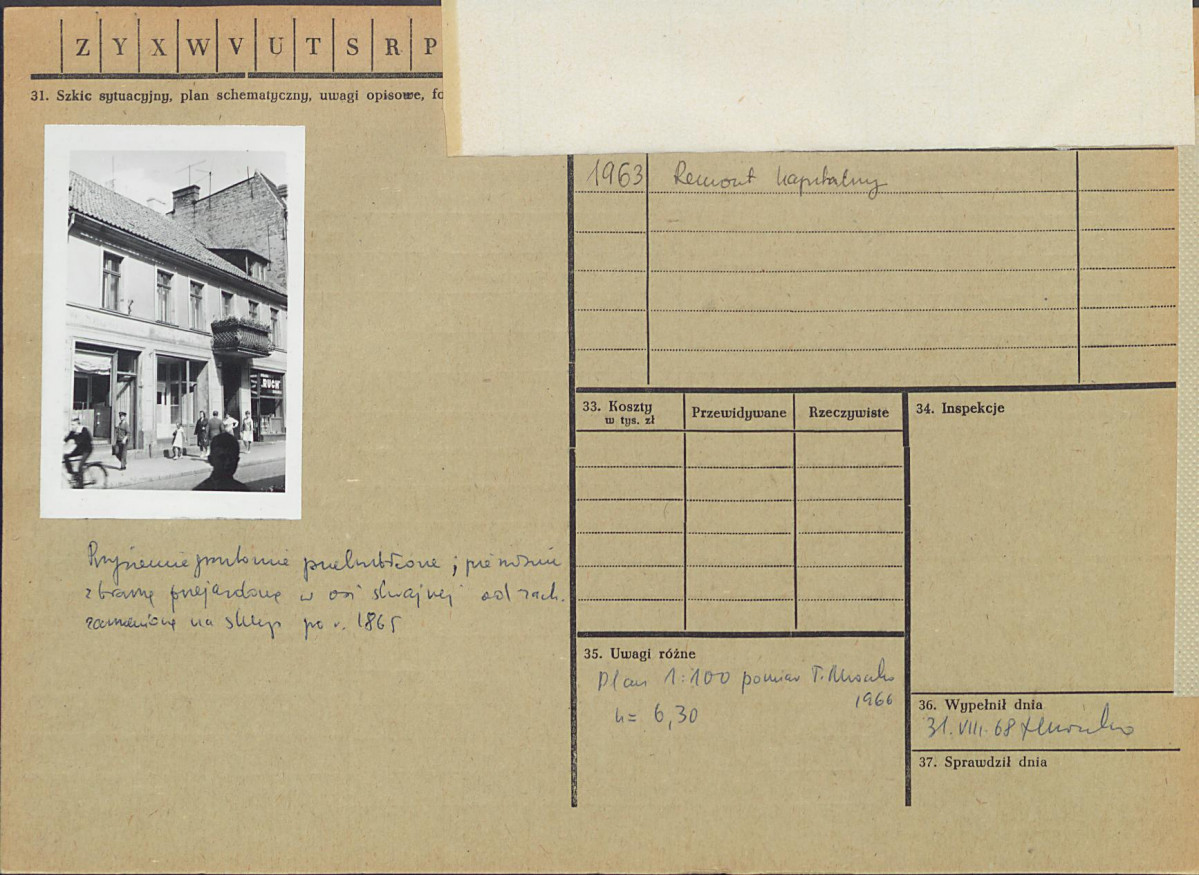 Z Y X W V U T S R P
31. Szkic sytuacyjny, plan schematyczny, uwagi opisowe, fo
"RUCH"
1963 Remont kapitalny
33. Koszty
w tys. zł
Przewidywane
Rzeczywiste
34. Inspekcje
przekształcone; pierwotnie
z bramą przejazdową w osi skrajnej od zach.
zamienioną na sklep po r. 1865
35. Uwagi różne
Plan 1:100 pomiar T.
1966
h= 6,30
36. Wypełnił dnia
31. VIII. 68
37. Sprawdził dnia